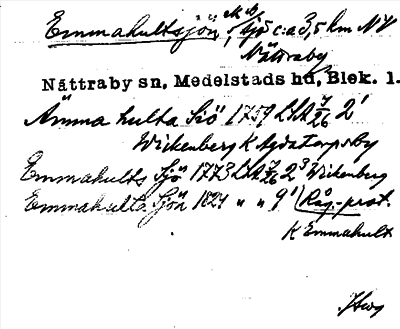 Emmakultsjön, sjö c:a 3,5 km NV
Nättraby
Nättraby sn, Medelstads hd, Blek. l.
Ämma hulta Siö 1759 LSA 7/26 2'
Wickenberg K Agdatorpsby
Emmakults Sjö 1773 LSA 7/26 2³ Wickenberg
Emmakults Sjön 1824 " " 9' Råg.-prot.
K Emmahult